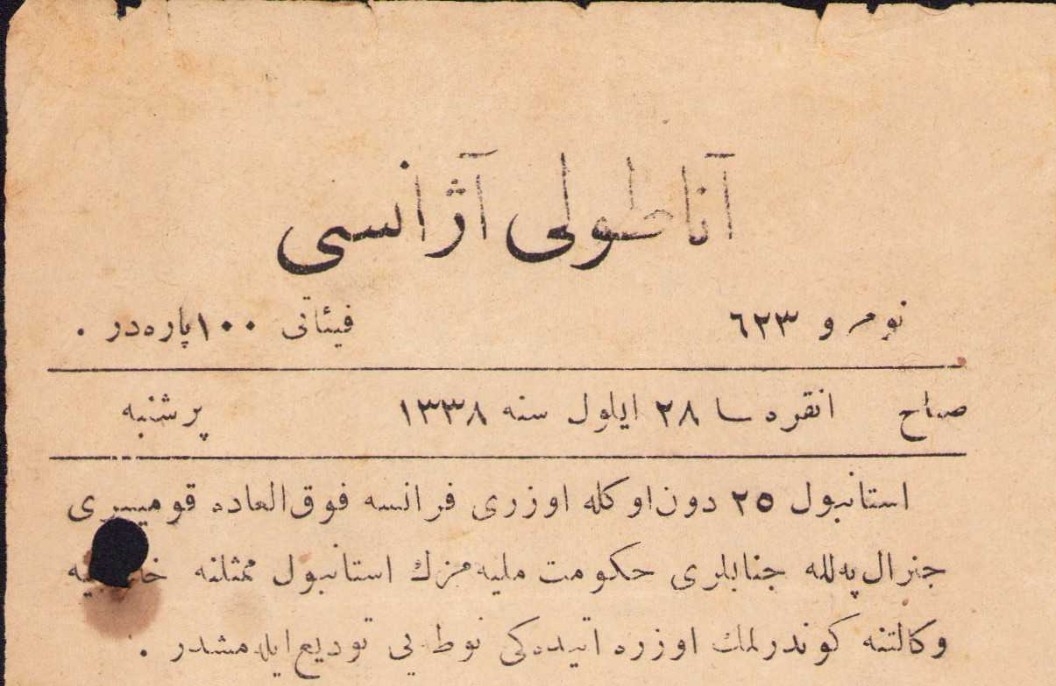 آناطولی آژانسی
نومرو ٦٢٣ فیئاتی ١٠٠ پاره‌در .
صباح انقره ـــ ٢٨ ایلول سنه ١٣٣٨ پرشنبه
استانبول ٢٥ دون‌اوكله اوزری فرانسه فوق‌العاده قومیسری
جنرال په‌لله جنابلری حكومت ملیه‌مزك استانبول ممثلنه
وكالتنه كوندرلمك اوزره اتیده‌كی نوطه‌یی تودیع‌ایله‌مشدر .